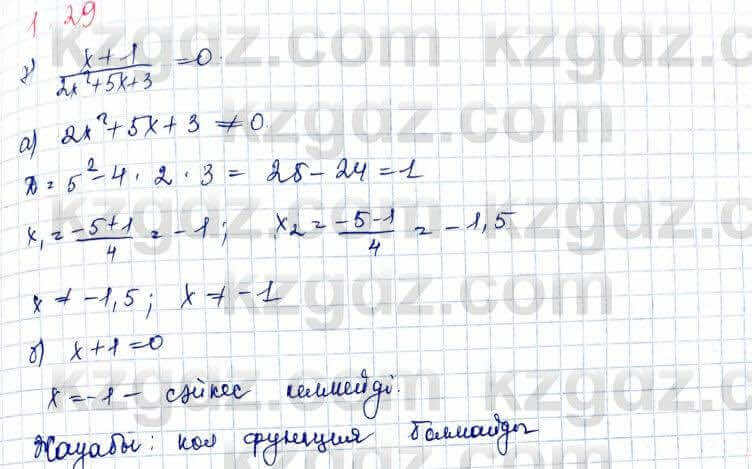 1.29
г) (x+1)/(2x²+5x+3) = 0.
а) 2x²+5x+3 ≠ 0.
D = 5²-4·2·3 = 25-24 = 1
x₁ = (-5+1)/4 = -1; x₂ = (-5-1)/4 = -1,5
x ≠ -1,5; x ≠ -1
б) x+1=0
x=-1 - сәйкес келмейді.
Жауабы: нөл функция болмайды
kzgdz.com
kzgdz.com
kzgdz.com
kzgdz.com
kzgdz.com
kzgdz.com